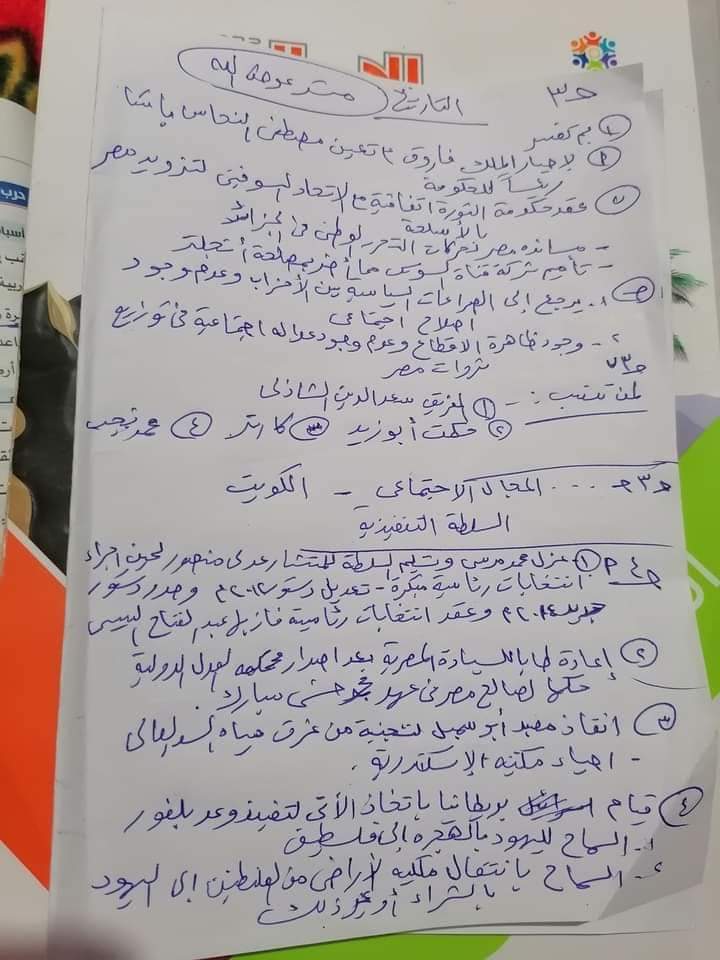 مستر عوض الله
التاريخ
ج٣
٢ بم تفسر
١ لإجبار الملك فاروق م تعين مصطفى النحاس باشا
رئيساً للحكومة
٢ عقد حكومة الثورة اتفاقية مع الاتحاد السوفيتى لتزويد مصر
بالأسلحة
- مسانده مصر لحركات التحرر الوطنى فى الجزائر
- تأميم شركة قناة السويس مما أضر بمصلحة أنجلترا
١. يرجع إلى الصراعات السياسية بين الأحزاب وعدم وجود
اصلاح اجتماعى
٢- وجود ظاهرة الاقطاع وعدم وجود عداله اجتماعية فى توزيع
ثروات مصر
ج٣
لمن تنسب :- ١ الفريق سعد الدين الشاذلى
٢ حكمت أبوزيد ٣ كارتر ٤ محمد نجيب
ج٣ .... المجال الاجتماعى - الكويت
السلطة التنفيذية
ج٤ ١ عزل محمد مرسى وتسليم السلطة للمستشار عدلى منصور لحين اجراء
انتخابات رئاسية مبكرة - تعديل دستور ٢٠١٢م وصدر دستور
جديد ٢٠١٤م وعقد انتخابات رئاسية فاز بها عبد الفتاح السيسى
٢ إعادة طابا للسيادة المصرية بعد اصدار محكمه العدل الدولية
حكمها لصالح مصر فى عهد حسنى مبارك
٣ انقاذ معبد أبو سمبل لتجنية من غرق مياه السد العالى
- احياء مكتبه الإسكندرية .
٤ قيام بريطانيا باتخاذ الأتى لتنفيذ وعد بلفور
١- السماح لليهود بالهجره إلى فلسطين
٢- السماح بانتقال ملكيه الأراضى من الفلسطنين إلى اليهود
بالشراء أو غير ذلك